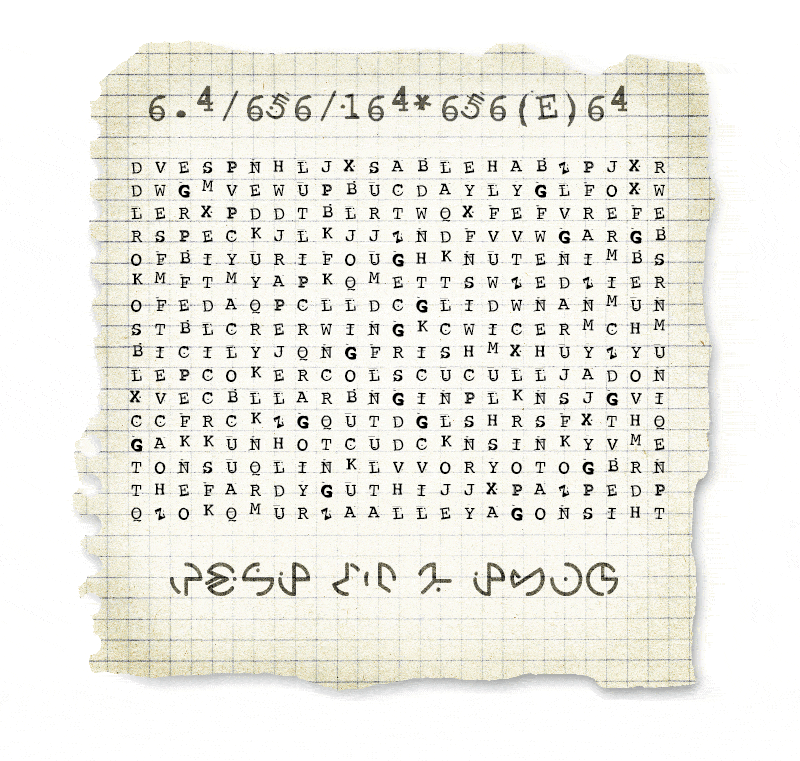 6.4/656/164*656(E)64
D V E S P N H L J X S A B L E H A B Z P J X R
D W G M V E W U P B U C D A Y L Y G L F O X W
L E R X P D D T B L R T W Q X F E F V R E F E
R S P E C K J L K J J Z N D F V V W G A R G B
O F B I Y U R I F O U G H K N U T E N I M B S
K M F T M Y A P K Q M E T T S W Z E D Z I E R
O F E D A Q P C L L D C G L I D W N A N M U N
S T B L C R E R W I N G K C W I C E R M C H M
B I C I L Y J Q N G F R I S H M X H U Y Z Y U
L E P C O K E R C O L S C U C U L L J A D O N
X V E C B L L A R B N G I N P L K N S J G V I
C C F R C K Z G Q U T D G L S H R S F X T H Q
G A K K U N H O T C U D C K N S I N K Y V M E
T O N S U Q L I N K L V V O R Y O T O G B R N
T H E F A R D Y G U T H I J J X P A Z P E D P
Q Z O K Q M U R Z A A L L E Y A G O N S I H T